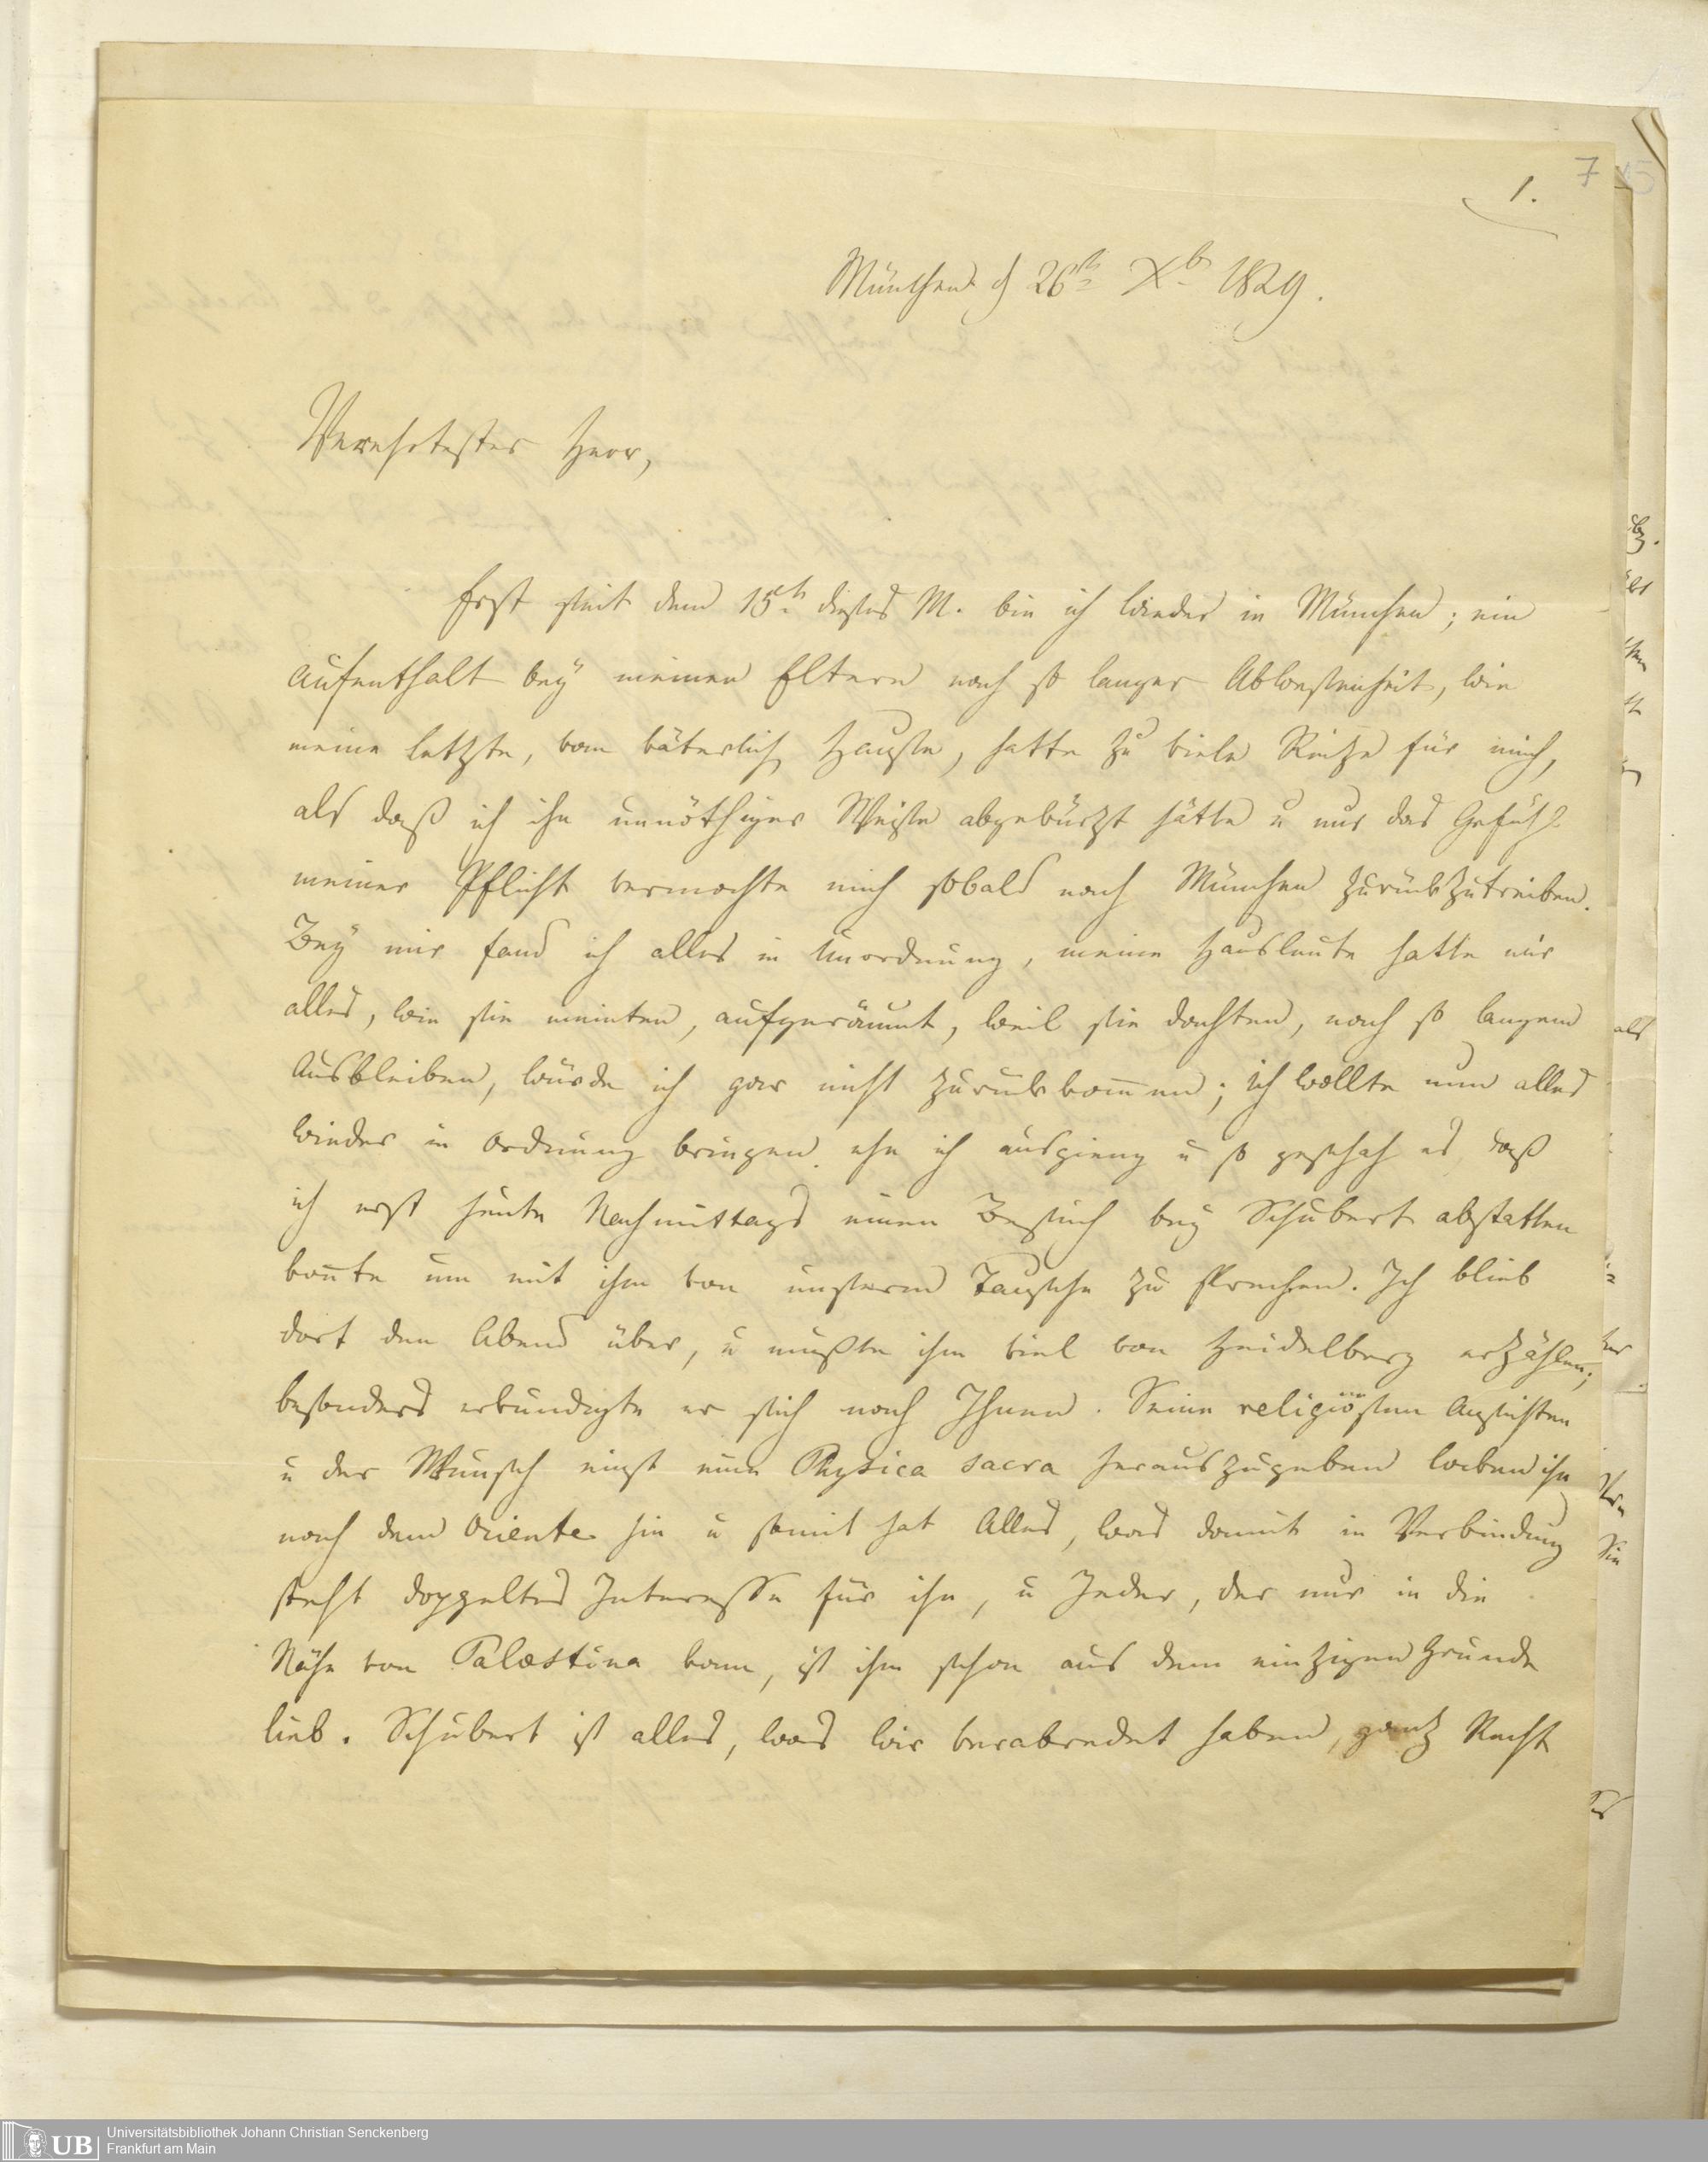 7
1.
München d 26th Xb 1829.
Verehrtester Herr,
Erst seit dem 15th dieses M. bin ich wieder in München; ein
Aufenthalt bey meinen Eltern nach so langer Abwesenheit, wie
meine letzte, vom väterlich Hause, hatte zu viele Reitze für mich,
als daß ich ihn unnöthiger Weise abgekürzt hätte u nur das Gefühl
meiner Pflicht vermochte mich sobald nach München zurückzutreiben.
Bey mir fand ich alles in Unordnung, meine Hausleute hatte mir
alles, wie sie meinten, aufgeräumt, weil sie dachten, nach so langem
Ausbleiben, würde ich gar nicht zurückkom̅en; ich wollte nun alles
wieder in Ordnung bringen ehe ich ausgieng u so geschah es daß
ich erst heute Nachmittags einen Besuch bey Schubert abstatten
kon̅te um mit ihm von unserem Tausche zu sprechen. Ich blieb
dort den Abend über, u mußte ihm viel von Heidelberg erzählen;
besonders erkundigte er sich nach Ihnen. Seine religiösen Ansichten
u der Wunsch einst eine Physica sacra herauszugeben locken ihn
nach dem Oriente hin u somit hat Alles, was damit in Verbindung
steht doppeltes Interesse für ihn, u Jeder, der nur in die
Nähe von Palæstina kam, ist ihm schon aus dem einzigen Grunde
lieb. Schubert ist alles, was wir verabredet haben, ganz Recht
als
UB
Universitätsbibliothek Johann Christian Senckenberg
Frankfurt am Main